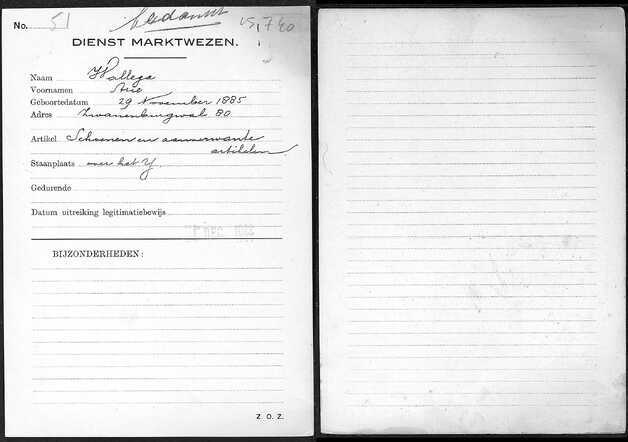 No. 51 Bedankt 15/7 40
DIENST MARKTWEZEN.
Naam Wallega
Voornamen Arie
Geboortedatum 29 November 1885
Adres Zwanenburgwal 80
Artikel Schoenen en aanverwante
artikelen
Staanplaats over het Y
Gedurende
Datum uitreiking legitimatiebewijs
BIJZONDERHEDEN:
Z. O. Z.